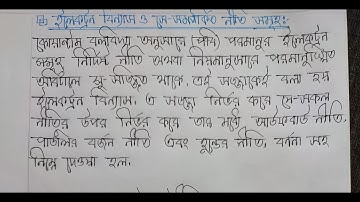 ইলেকট্রন বিন্যাস ও সে-সকল নীতি সমূহ:-
কোয়ান্টাম বলবিদ্যা অনুসারে প্রতি পরমানুর ইলেকট্রন
সমূহ নির্দিষ্ট নীতি অথবা নিয়মানুসারে পরমানুতে
অরবিটালে সু-সজ্জিত থাকে, এই সজ্জাকেই বলা হয়
ইলেকট্রন বিন্যাস, এ সজ্জা নির্ভর করে সে-সকল
নীতির উপর নির্ভর করে তার মধ্যে আউফবাউ নীতি,
পাউলির বর্জন নীতি এবং হুন্ডের নীতি, বর্ননা সহ
নিম্নে দেওয়া হল,